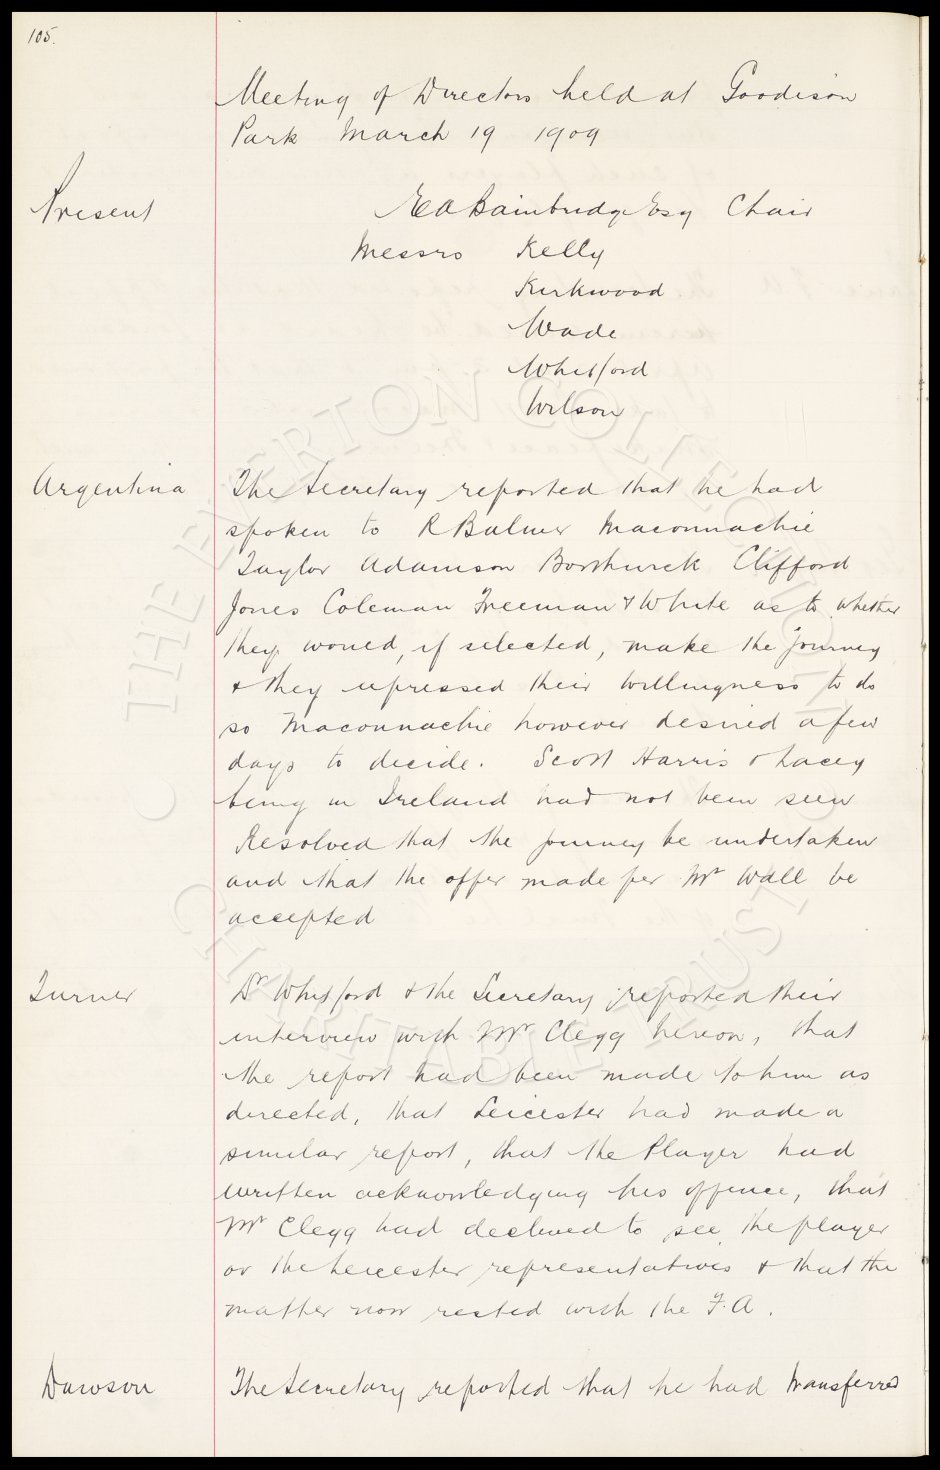 105.
Meeting of Directors held at Goodison
Park March 19 1909
Present
E A Bainbridge Esq Chair
Messrs Kelly
Kirkwood
Wade
Whitford
Wilson
Argentina
The Secretary reported that he had
spoken to R Balmer Maconnachie
Taylor Adamson Borthwick Clifford
Jones Coleman Freeman & White as to whether
they would, if selected, make the journey
& they expressed their willingness to do
so Maconnachie however desired a few
days to decide. Scott Harris & Lacey
being in Ireland had not been seen
Resolved that the journey be undertaken
and that the offer made per Mr Wall be
accepted
Turner
Dr Whitford & the Secretary reported their
interview with Mr Clegg hereon, that
the report had been made to him as
directed, that Leicester had made a
similar report, that the Player had
written acknowledging his offence, that
Mr Clegg had declined to see the player
or the Leicester representatives & that the
matter now rested with the F.A.
Dawson
The Secretary reported that he had transferred
© THE EVERTON COLLECTION
CHARITABLE TRUST